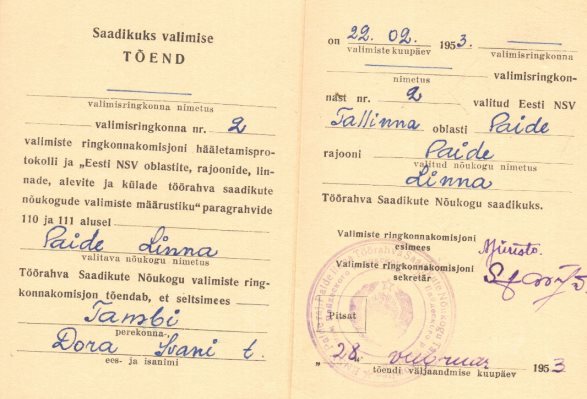 Saadikuks valimise
TÕEND
valimisringkonna nimetus
valimisringkonna nr. 2
valimiste ringkonnakomisjoni hääletamispro-
tokolli ja „Eesti NSV oblastite, rajoonide, lin-
nade, alevite ja külade töörahva saadikute
nõukogude valimiste määrustiku" paragrahvide
110 ja 111 alusel
Paide Linna
valitava nõukogu nimetus
Töörahva Saadikute Nõukogu valimiste ring-
konnakomisjon tõendab, et seltsimees
Tambi
perekonna-
Dora Ivani t.
ees- ja isanimi
on 22. 02. 1953.
valimiste kuupäev valimisringkonna
valimisringkon-
nimetus
nast nr. 2 valitud Eesti NSV
Tallinna oblasti Paide
rajooni Paide
valitud nõukogu nimetus
Linna
Töörahva Saadikute Nõukogu saadikuks.
Valimiste ringkonnakomisjoni
esimees
Valimiste ringkonnakomisjoni
sekretär
Pitsat
„28. veebruar 1953
tõendi väljaandmise kuupäev